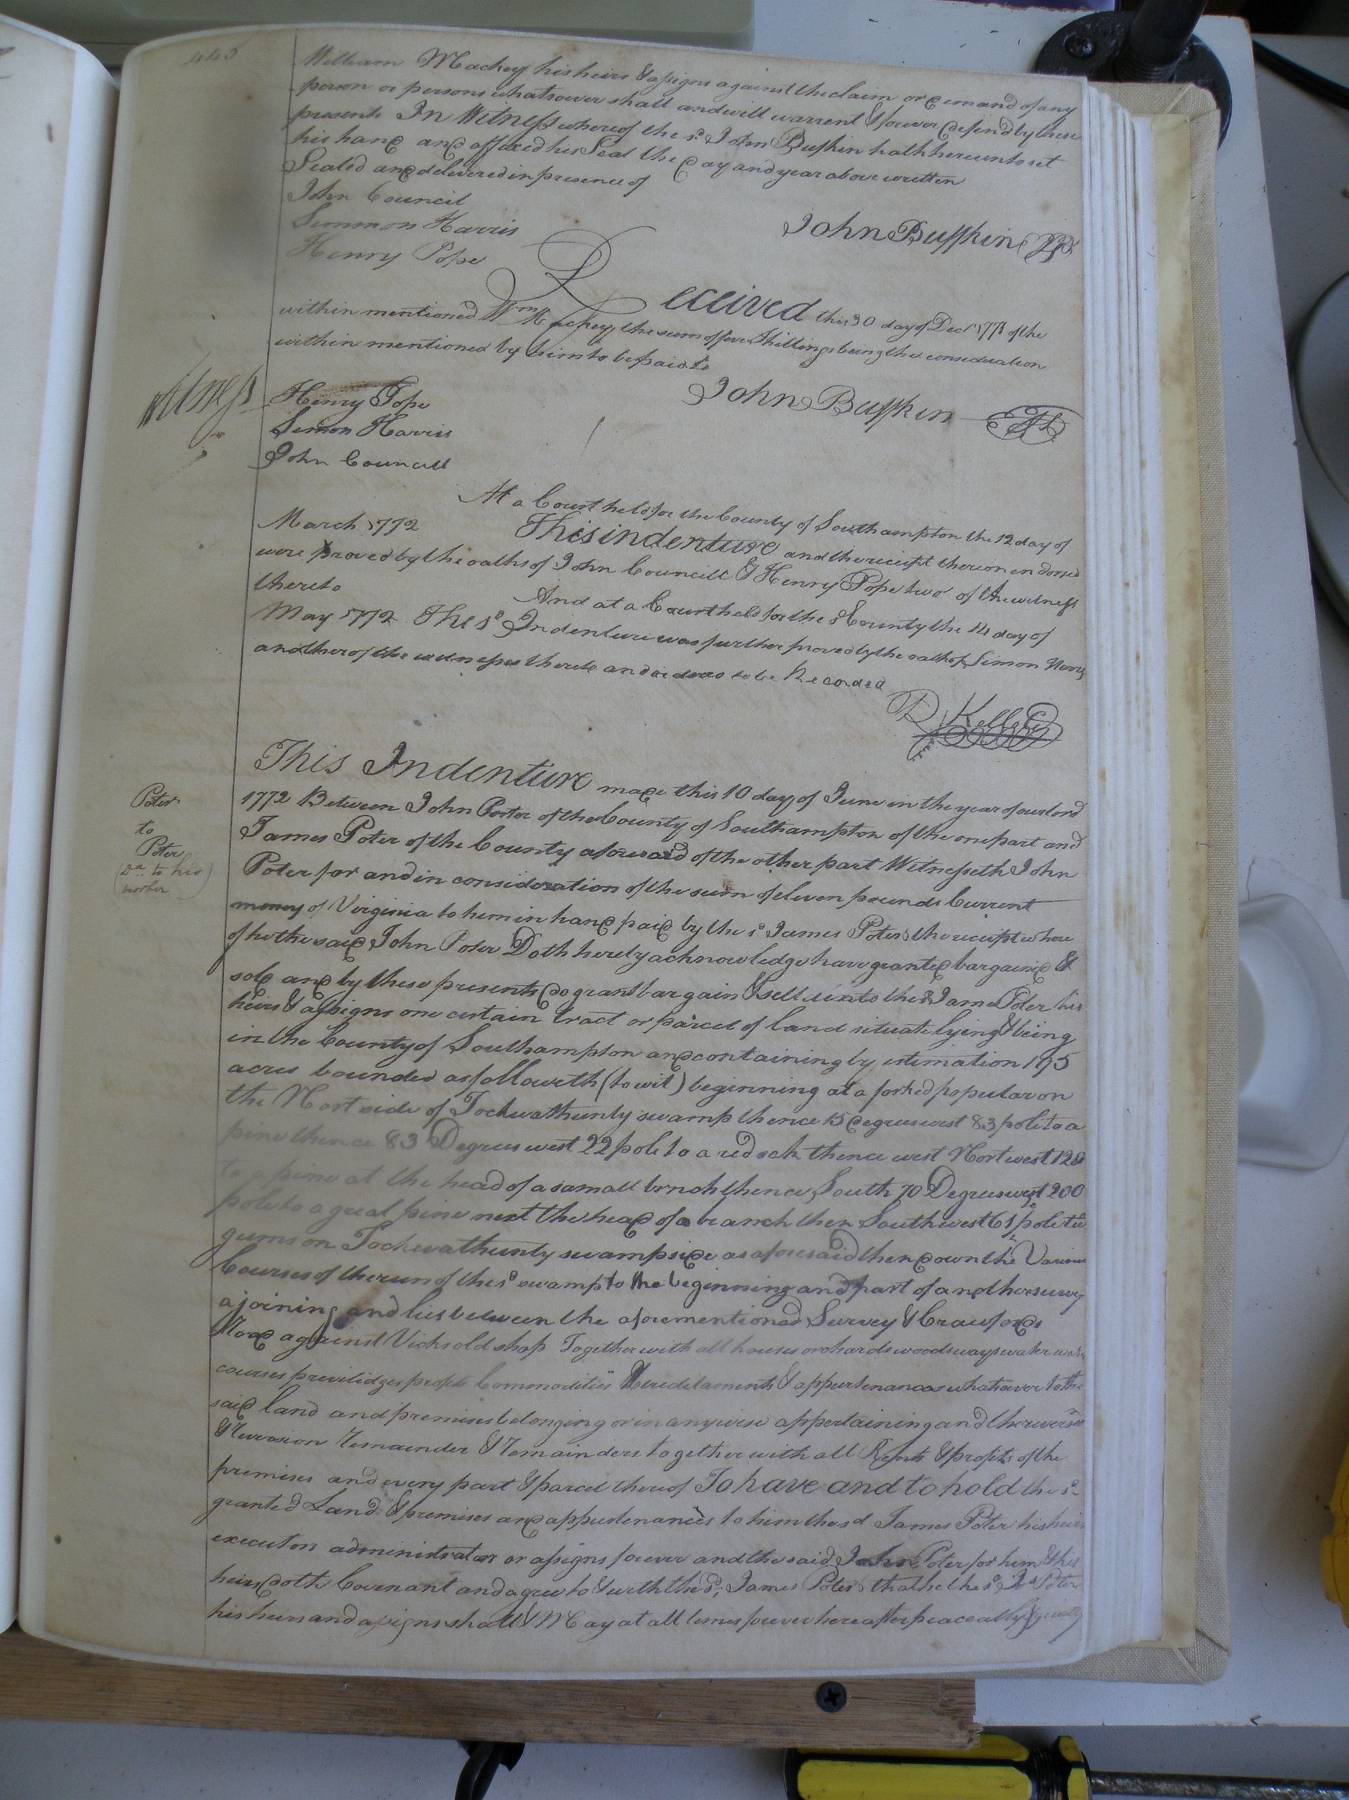 443
William Mackey his heirs & assigns against the claim or demand of any
person or persons whatsower shall and will warrent & forever defend by these
presents In Witness whereof the sd John Buffkin hath hereunto set
his hand and affixed his Seal the day and year above written
Sealed and delivered in presence of
John Council
Simmon Harris
Henry Pope
John Buffkin
Received this 30 day of Decr 1771 of the
within mentioned Wm Mackey the sum of five Shillings being the consideration
within mentioned by him to be paid
John Buffkin
Witness
Henry Pope
Simon Harris
John Councill
At a Court held for the County of Southampton the 12 day of
March 1772 This indenture and the receipt thereon endorsed
were proved by the oaths of John Councill & Henry Pope two of the witness
thereto
And at a Court held for the sd County the 14 day of
May 1772 The sd Indenture was further proved by the oath of Simon Harris
another of the witnesses thereto and ordered to be Recorded
R Kello
This Indenture made this 10 day of June in the year of our lord
1772 Between John Porter of the County of Southampton of the one part and
James Poter of the County aforesaid of the other part Witnesseth John
Poter for and in consideration of the sum of eleven pounds Current
money of Virginia to him in hand paid by the sd James Poter the receipt where
of he the said John Poter Doth hereby acknowledge have granted bargained &
sold and by these presents do grant bargain & sell unto the sd James Poter his
heirs & assigns one certain tract or parcel of land situate lying & being
in the County of Southampton and containing by estimation 195
acres bounded as followeth (to wit) beginning at a forked popular on
the Nort side of Tockwathunty swamp thence 15 degrees west 83 pole to a
pine thence 83 Degrees west 22 pole to a red oak thence west Nort west 120
to a pine at the head of a samall brnch thence South 70 Degrees west 200
pole to a great pine next the head of a branch then Southwest 61 pole to
gums on Tockwathunty swamp side as aforesaid then down the Various
Courses of the run of the sd swamp to the beginning and part of another survey
ajoining and lies between the aforementioned Survey & Crawfords
Road against Vicks old shop Together with all houses orchards woods ways water
courses previlidges profits Commodities Hereditaments & appurtenances whatsover to the
said land and premises belonging or in any wise appertaining and the
Reversion Remainder & Remainders together with all Rents & profits of the
premises and every part & parcel thereof To have and to hold the sd
granted Land & premises and appurtenances to him the sd James Poter his heirs
executors administrators or assigns forever and the said John Poter for him & his
heirs doth Covenant and agree to & with the sd James Poter that he the sd Jno Poter
his heirs and assigns shall & May at all times forever hereafter peaceably &
Poter
to
Poter
Dd to his